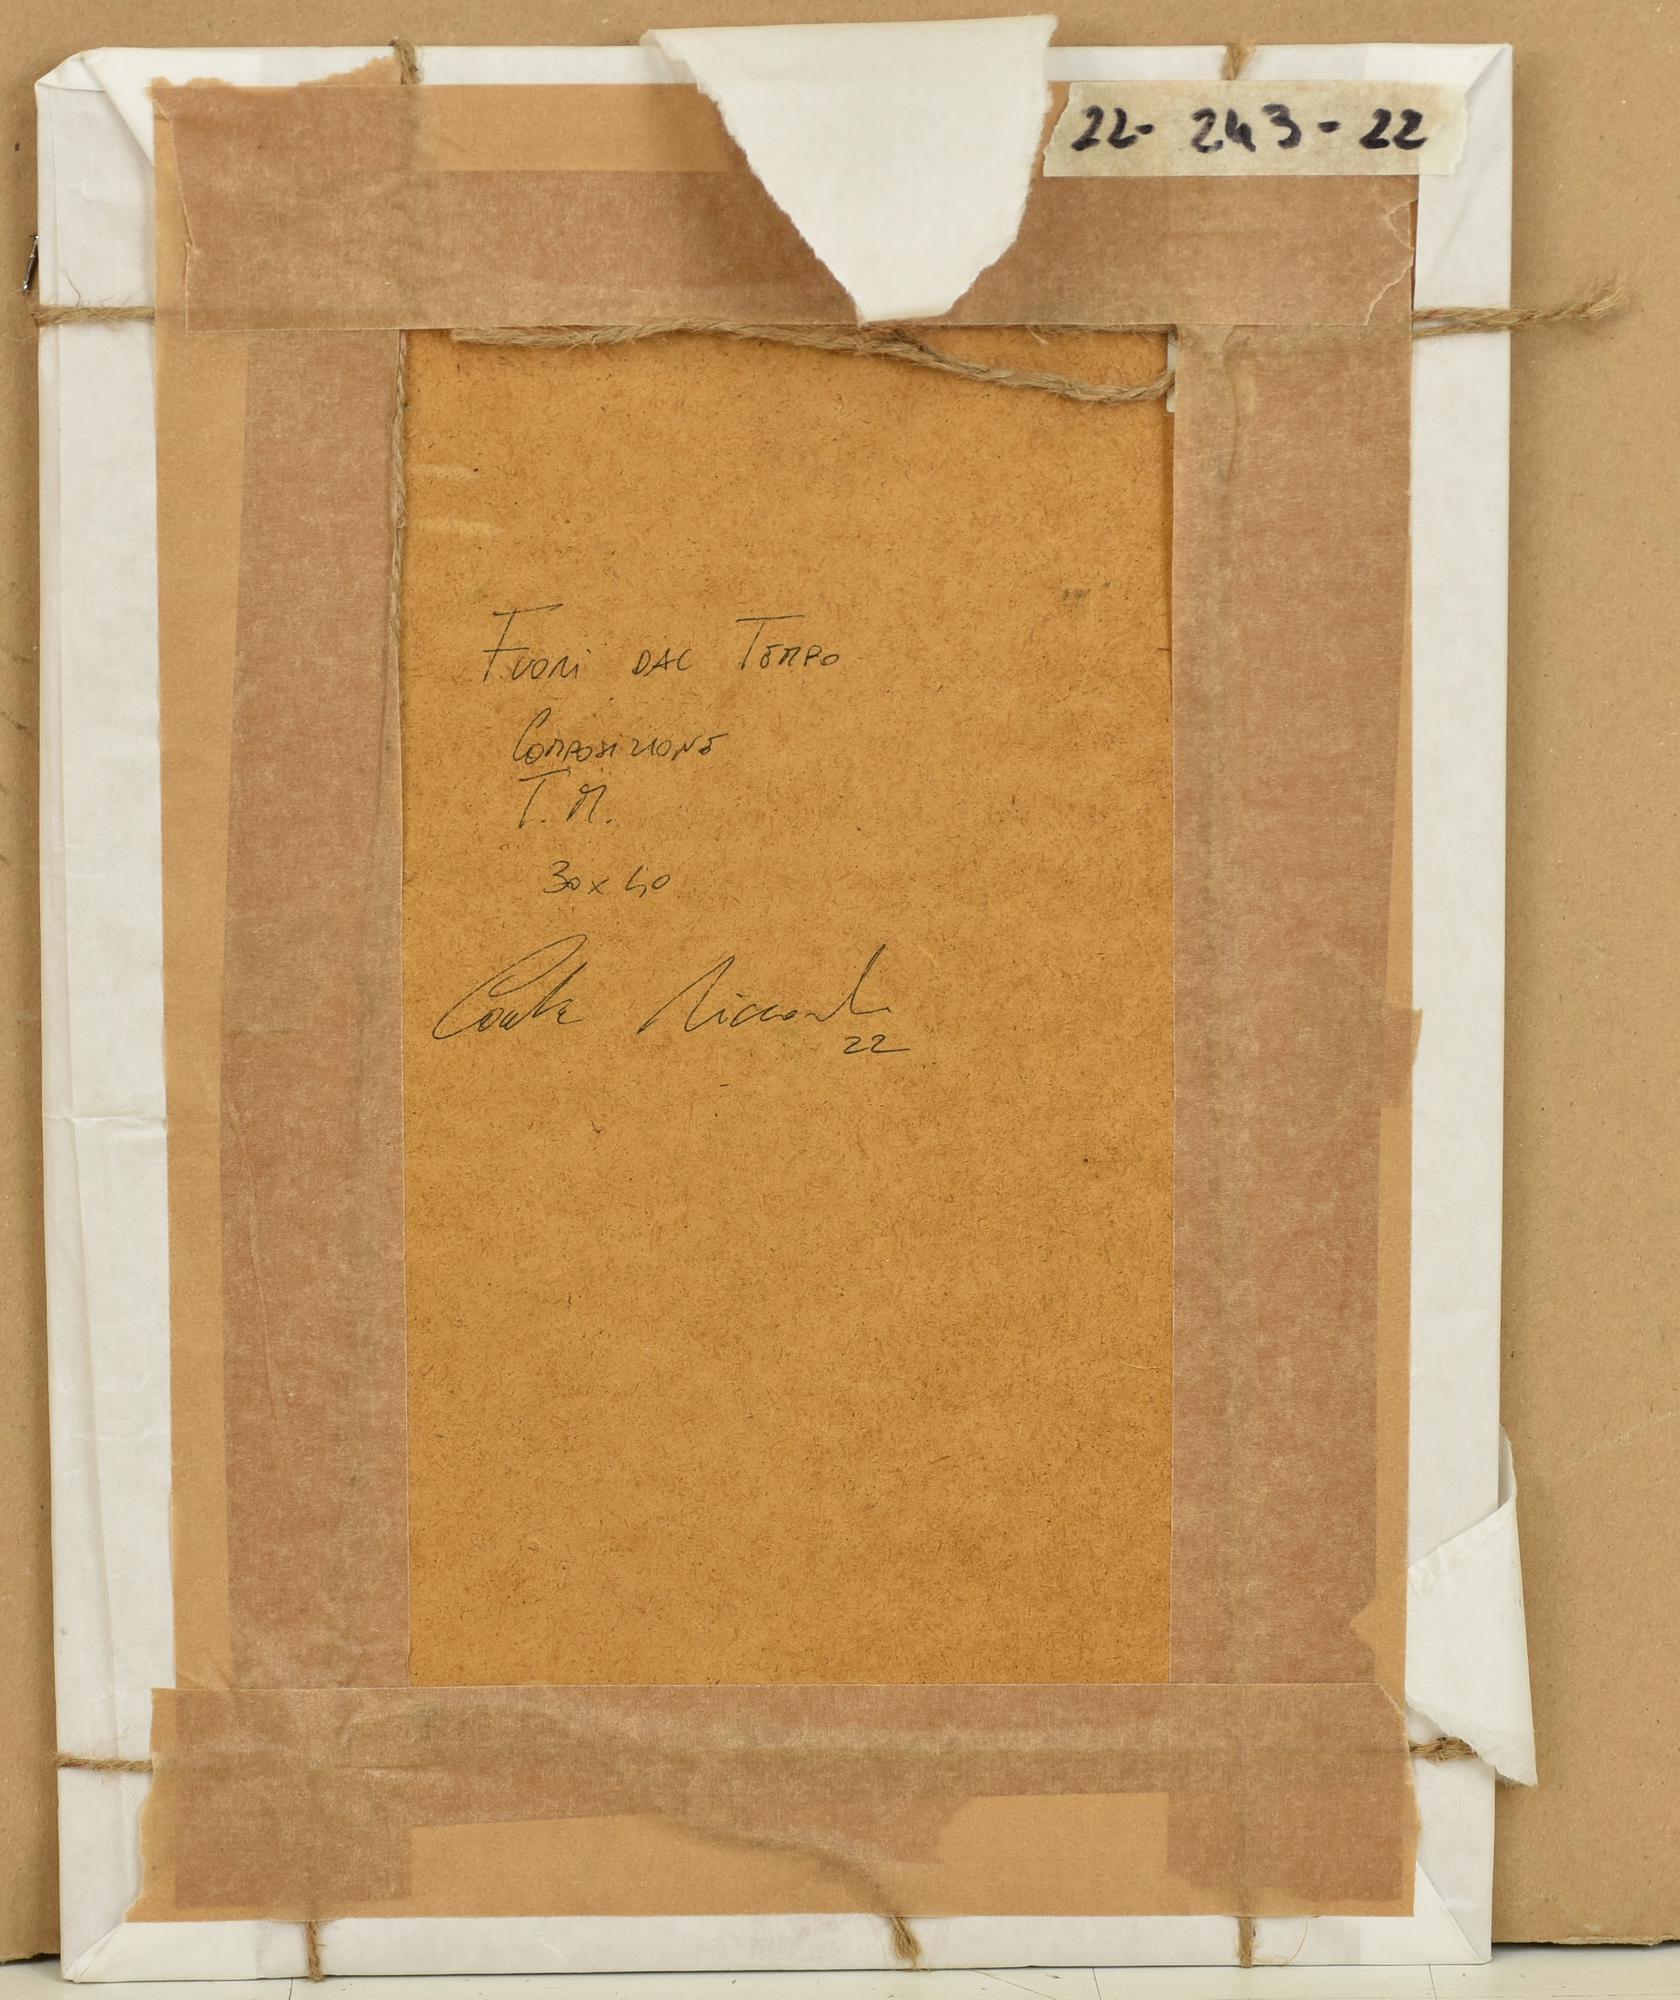 22-243-22
Fuori dal Tempo
Composizione
T.M.
30x40
Conte Riccardo
22